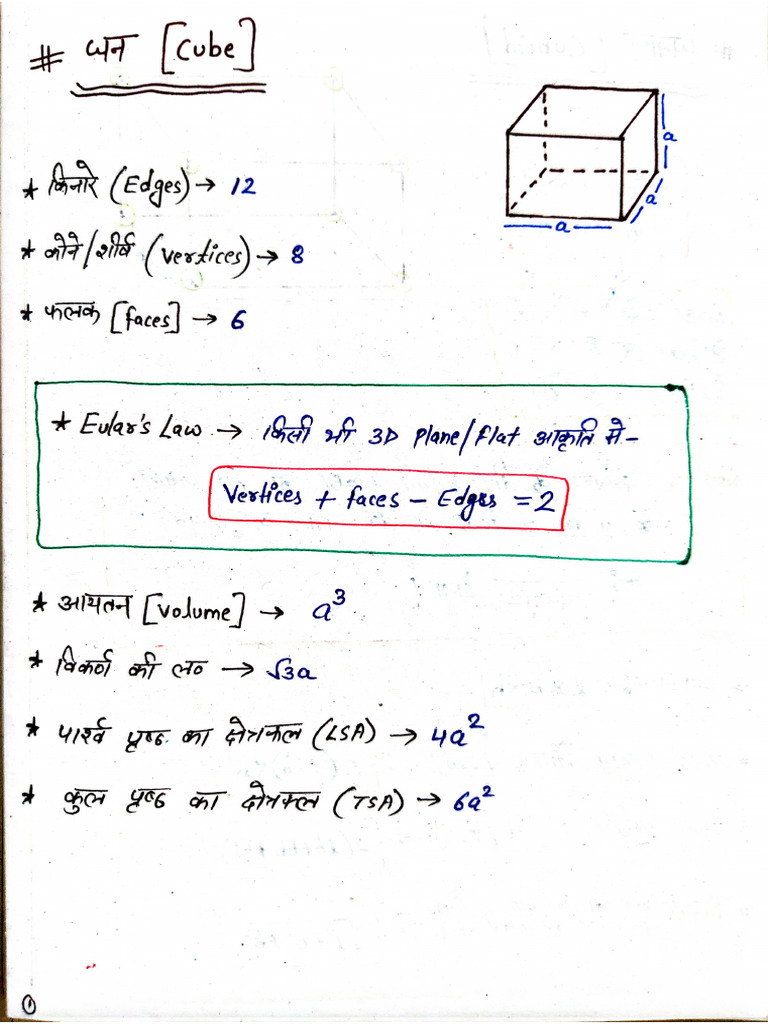 # घन [Cube]
a
a
a
* किनारे (Edges) → 12
* कोने/शीर्ष (Vertices) → 8
* फलक [faces] → 6
* Eular's Law → किसी भी 3D Plane/flat आकृति मे -
Vertices + faces - Edges = 2
* आयतन [Volume] → a³
* विकर्ण की ल० → √3a
* पार्श्व पृष्ठ का क्षेत्रफल (LSA) → 4a²
* कुल पृष्ठ का क्षेत्रफल (TSA) → 6a²
1